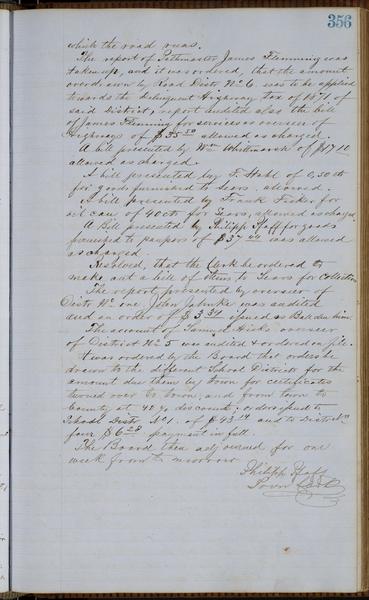 356
which the road runs.
The report of Pathmaster James Flemming was
taken up, and it was ordered, that the amount
overdrawn by Road Distr No 6. was to be applied
towards the delinquent Highway tax of 187 of
said District; report audited also the bill
of James Flemming for services as overseer of
Highways of $35.50 allowed as charged.
A bill presented by Wm Whittmarsh of $17.10
allowed as charged.
A bill presented by F. Hahl of 0,50 cts
for goods furnished to Sears, allowed.
A bill presented by Frank Fisk for
oil can of 40 cts for Sears, allowed as charged.
A Bill presented by Philipp Pfaff for goods
furnished to paupers of $37 was allowed
as charged.
Resolved, that the Clerk be ordered to
make out a bill of items to Sears for Collection
The report presented by overseer of
Distr. No one, John Jahnke was audited
and an order of $3.34 issued as Bal. due him.
The account of Samuel Hicks overseer
of District No 5 was audited & ordered on file.
It was ordered by the Board that orders be
drawn to the different School Districts for the
amount due them by town for certificates
turned over to town; and from town to
County at discount;
School Distr. No 1. of $43 and to District No
four $6 payment in full.
The Board then adjourned for one
week from to morrow
Philipp Pfaff
Town Clerk